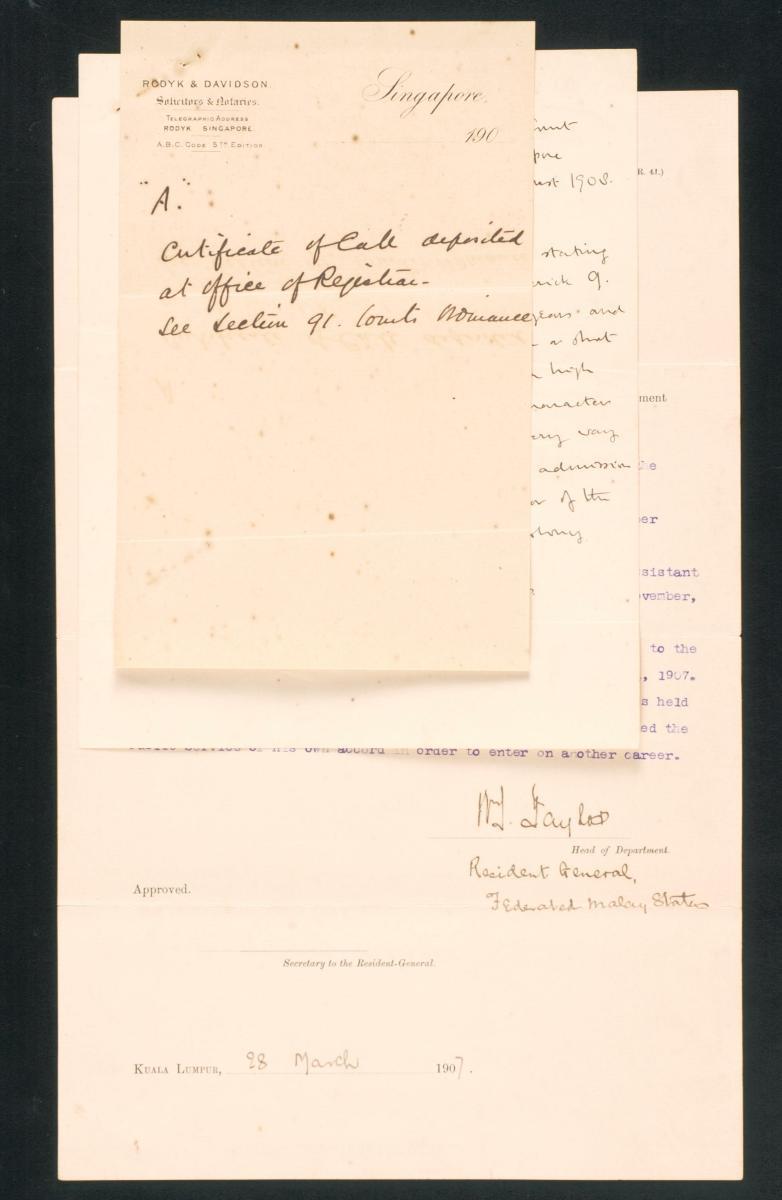 RODYK & DAVIDSON.
Solicitors & Notaries.
TELEGRAPHIC ADDRESS
RODYK SINGAPORE.
A.B.C. CODE 5TH EDITION
Singapore,
190
"A."
Certificate of Call deposited
at office of Registrar.
See Section 91. Courts Ordinance
1908.
R. 41.)
stating
rick G.
years and
a short
high
character
very way
admission
of the
colony
ment
the
er
ssistant
vember,
to the
, 1907.
s held
ed the
Public Service of his own accord in order to enter on another career.
W.T. Taylor
Head of Department.
Resident General,
Federated Malay States
Approved.
Secretary to the Resident-General.
KUALA LUMPUR, 28 March 1907.